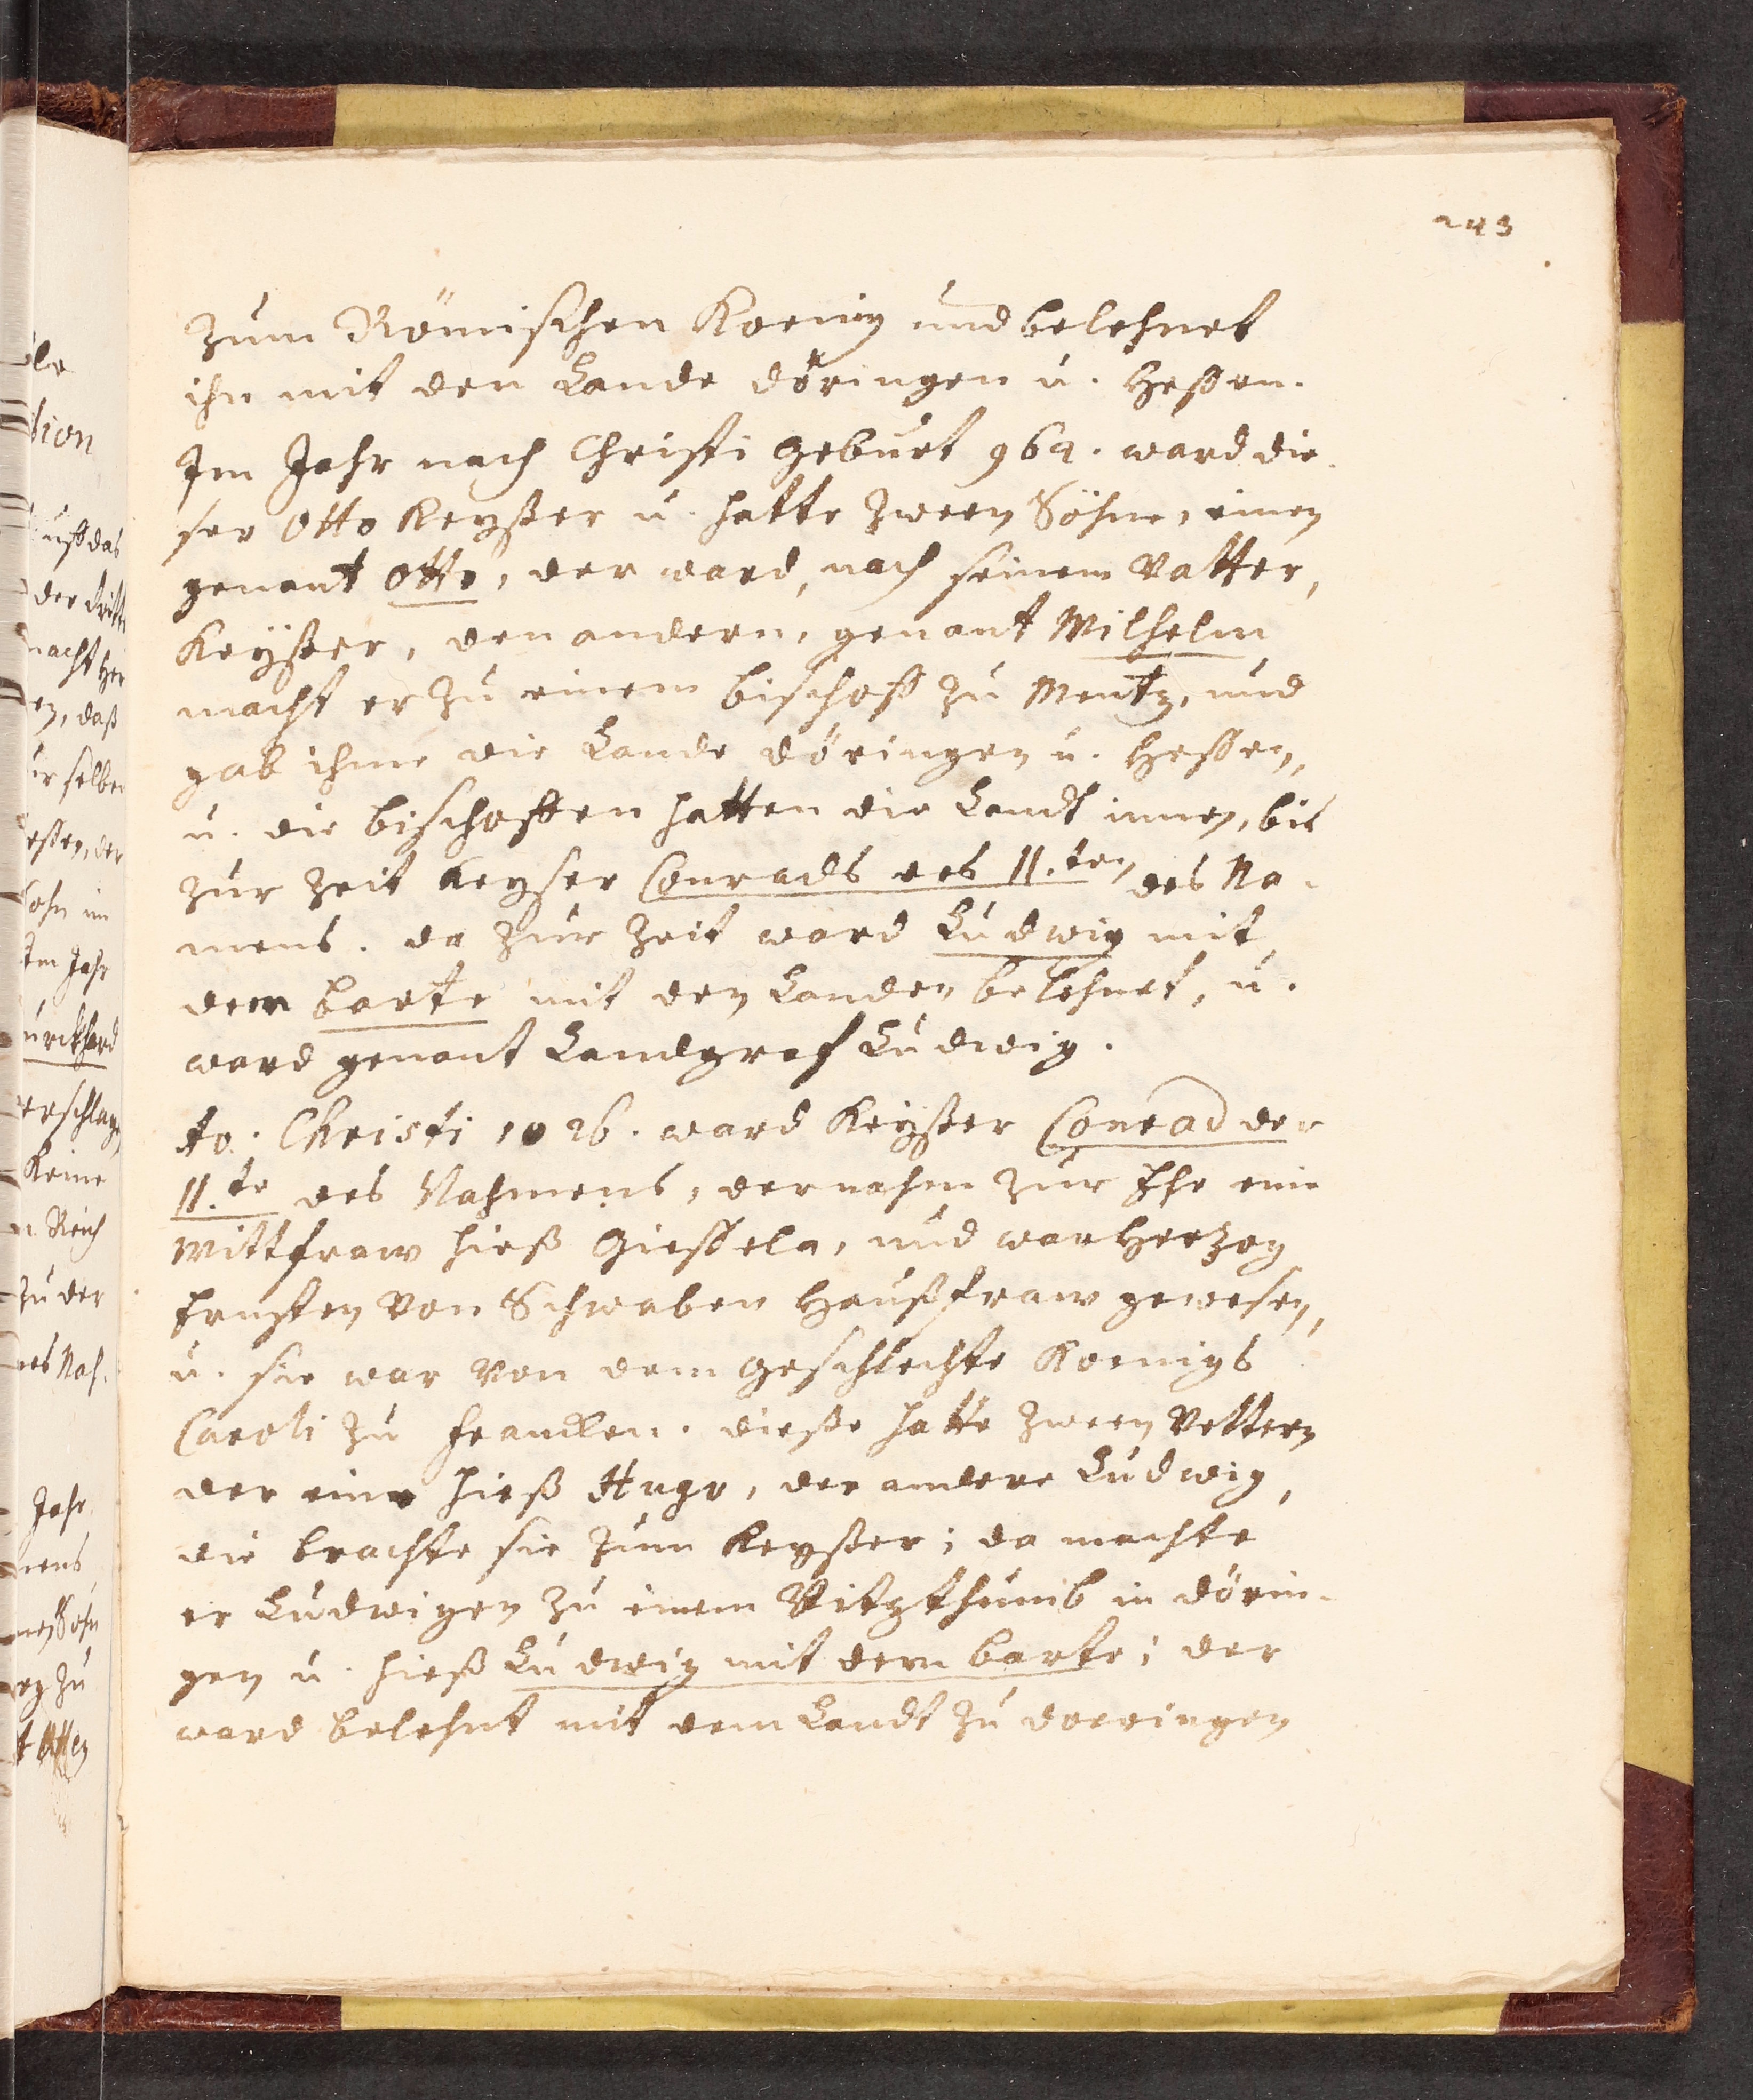 243
zum Römischen Koenig und belehnet
ihn mit den Lande döringen u. Heßen.
Im Jahr nach Christi Geburt 962. ward die-
ser Otto Keyßer u. hatte zween Söhne, einen
genant Otto, der ward, nach seinem Vatter,
Keyßer, den andern, genant Wilhelm
macht er zu einem bischoff zu Mentz, und
gab ihme die Lande döringen u. Heßen,
u. die bischoffen hatten die Landt innen, bis
zur Zeit Keyser Conrads des II.ten des Na-
mens. da zur Zeit ward Ludwig mit
dem barte mit den Landen belehnet, u.
ward genant Landgraf Ludwig.
Ao. Christi 1026. ward Keyßer Conrad der
II.te des Nahmens, der nahm zur Ehe eine
Wittfraw hieß Gießela, und war Herzog
Ernsten von Schwaben Haußfraw gewesen,
u. sie war von dem geschlechte Koenigs
Caroli zu francken. dieße hatte zween Vettern
der eine hieß Hugo, der andere Ludwig,
die brachte sie zum Keyßer; da machte
er Ludwigen zu einem Vitzthumb in dörin-
gen u. hieß Ludwig mit dem barte; der
ward belehnt mit dem Landt zu doeringen